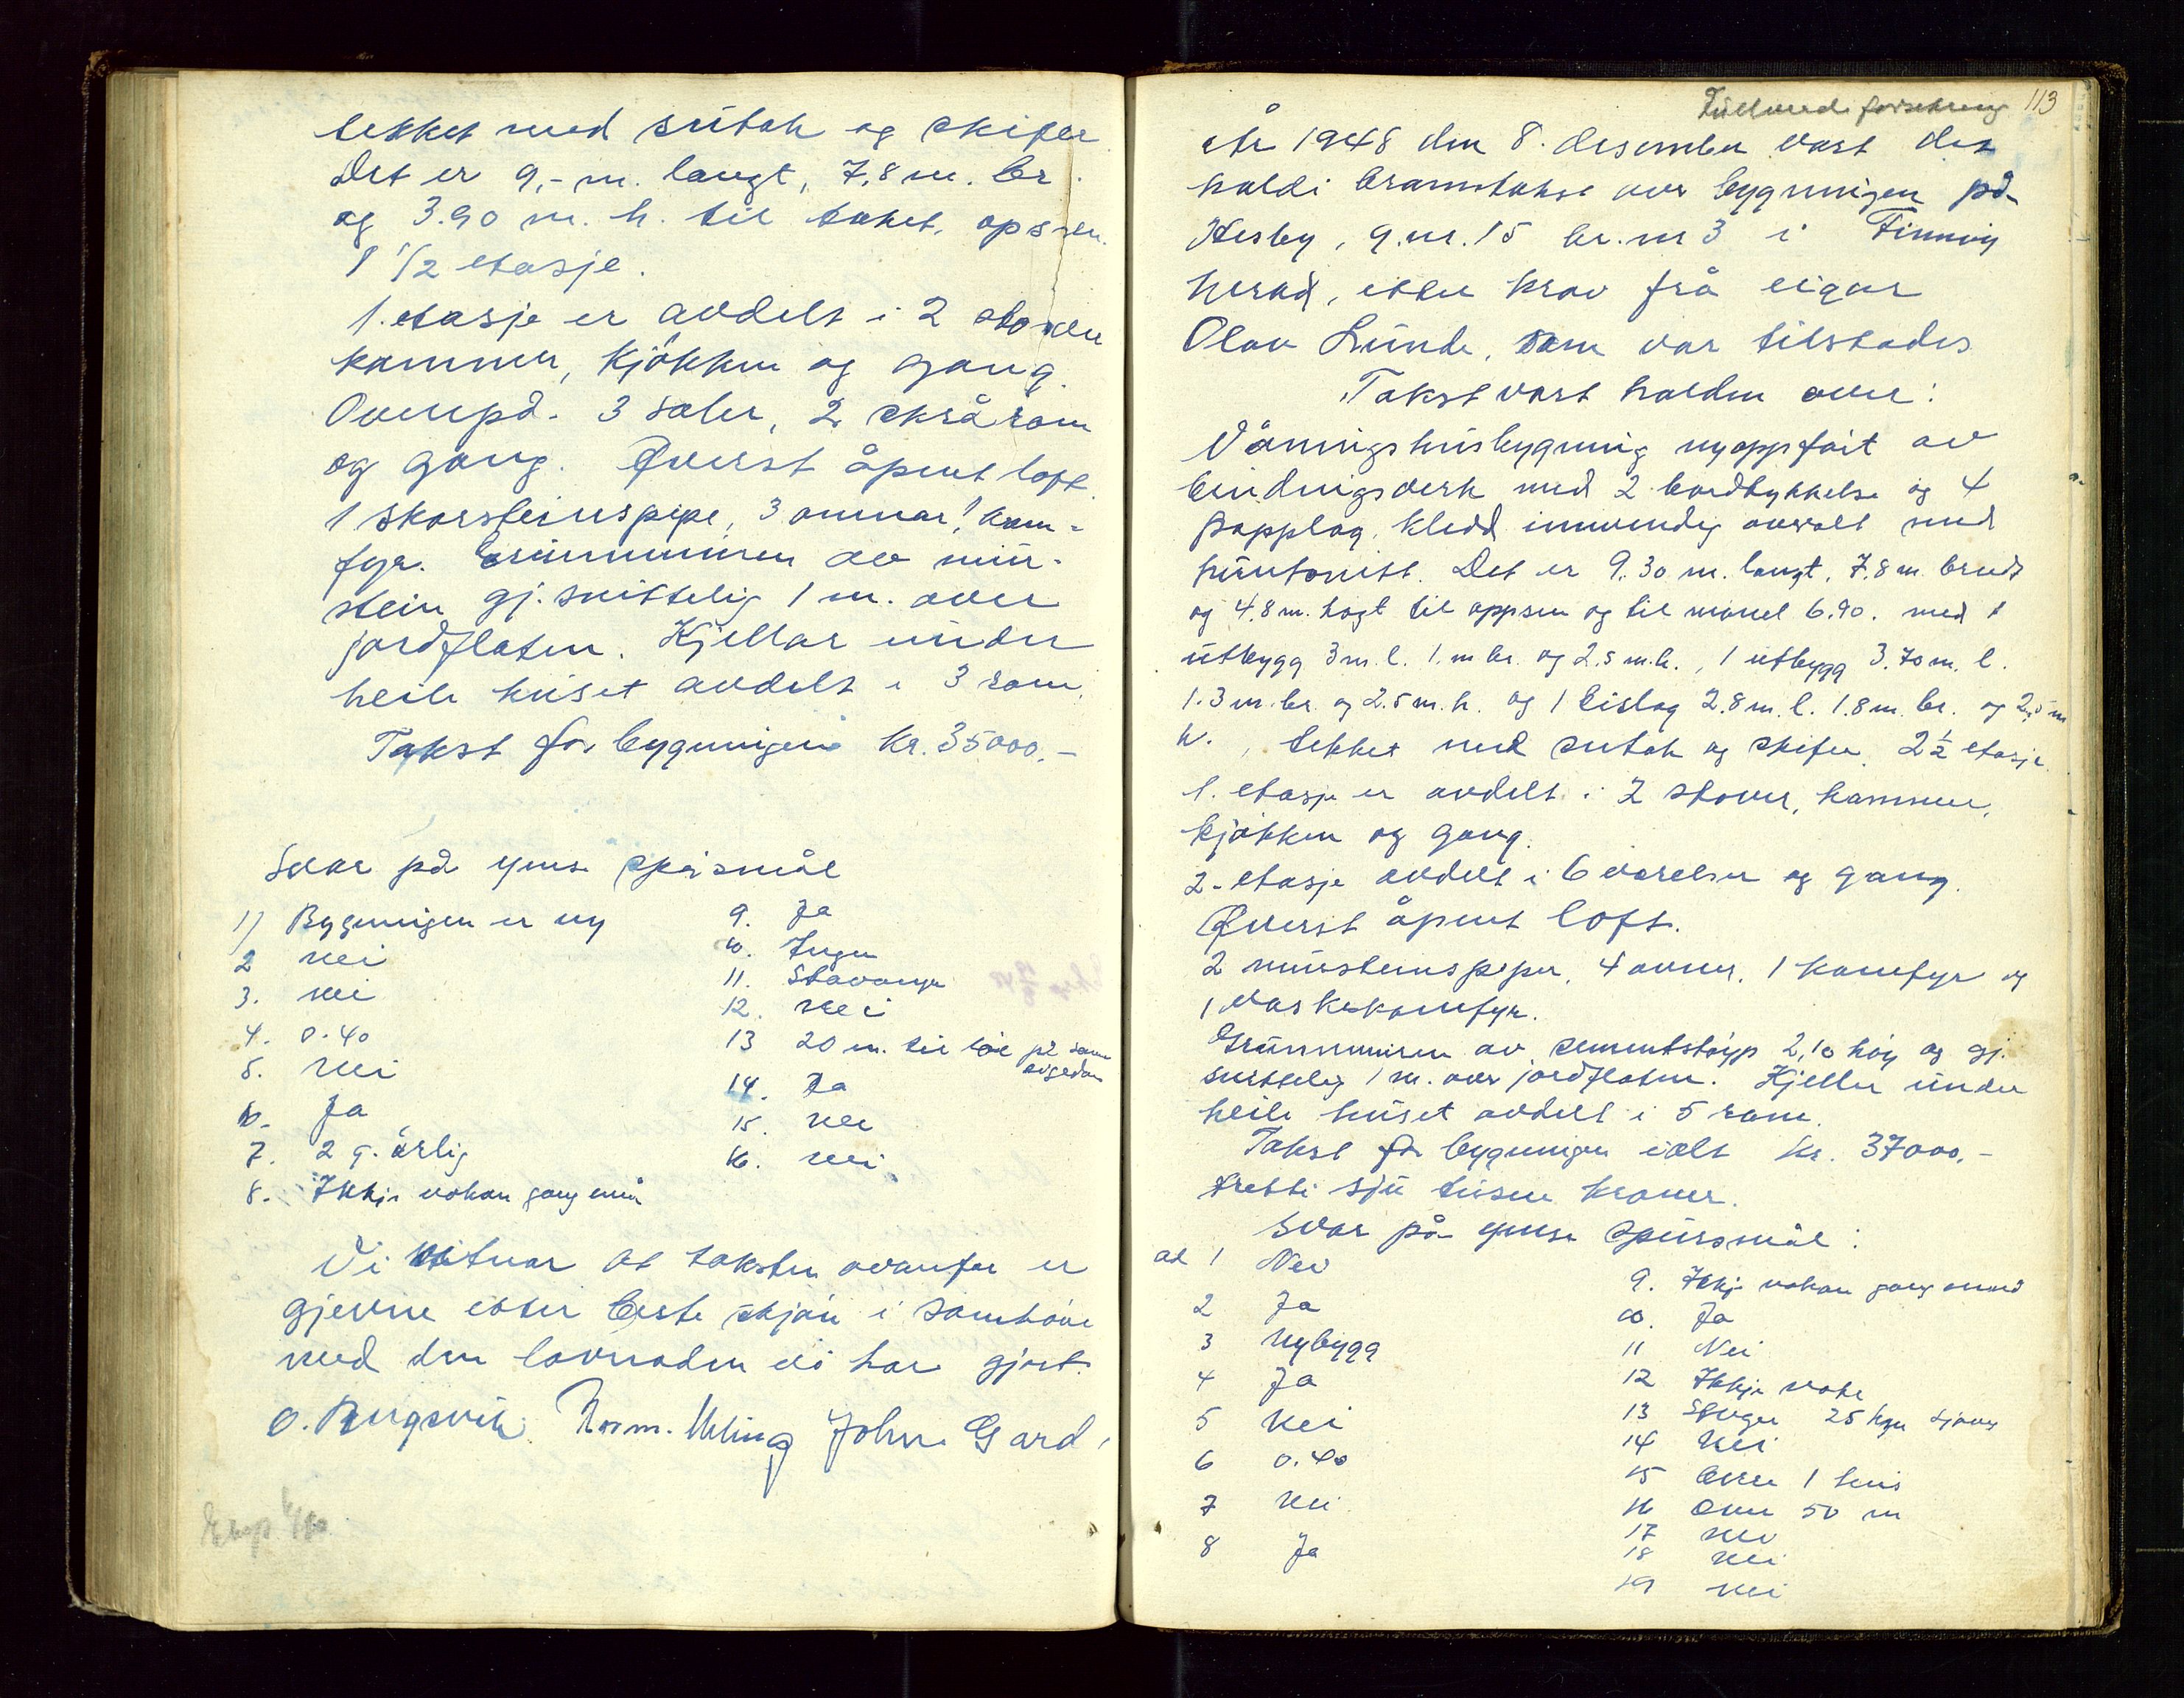 tekket med sutak og skifer
Det er 9,- m. langt, 7,8 m. br.
og 3.90 m. h. til taket, opsen.
1 1/2 etasje.
1. etasje er avdelt i 2 stover
kammer, kjökken og gang.
Ovenpå. 3 saler, 2 skrårom
og gang. Øverst åpent loft.
1 skorsteinspipe, 3 omnar, 1 kom-
fyr. Grunnmuren av mur-
stein gj. snittelig 1 m. over
jordflaten. Kjellar under
heile huset avdelt i 3 rom.
Takst for bygningen kr. 35000.-
Svar på ymse spörsmål
1) Bygningen er ny
2 nei
3. nei
4. 0.40
5. nei
6. Ja
7. 2 g. årlig
8. Ikkje nokon gang ennå
9. Ja
10. Ingen
11. Stavanger
12. nei
13 20 m. til löe på same
14. Ja
15. nei
16. nei
Vi vitnar at taksten ovanfor er
gjevne etter beste skjön i samhöve
med den lovnaden vi har gjort.
O. Bergsvik. Norm. Meling John Gard
113
År 1948 den 8. desember vart det
haldi branntakst over bygningen på
Hesby, g.nr. 15 br.nr 3 i Finnöy
herad, etter krav frå eigar
Olav Lunde, som var tilstades
Takst vart halden over:
Våningshusbygning nyoppfört av
bindingsverk med 2 bordtykkelse og 4
papplag, kledd innvendig overalt med
huntonitt. Det er 9.30 m. langt, 7,8 m. bredt
og 4,8 m. högt til oppsen og til mönet 6.90. med 1
utbygg 3 m. l. 1. m br. og 2.5 m.h., 1 utbygg 3.70 m. l.
1.3 m. br. og 2.5 m. h. og 1 bislag 2.8 m. l. 1.8 m. br. og 2,5 m
h., tekket med sutak og skifer. 2 1/2 etasje.
1. etasje er avdelt i 2 stover, kammer,
kjökken og gang.
2. etasje avdelt i 6 værelser og gang.
Øverst åpent loft.
2 mursteinspiper, 4 ovner, 1 komfyr og
1 vaskekomfyr.
Grunnmuren av sementstöyp 2,10 höy og gj.
snittelig 1 m. over jordflaten. Kjeller under
heile huset avdelt i 5 rom.
Takst for bygningen ialt kr. 37000.-
tretti sju tusen kroner.
Svar på ymse spursmål:
ad 1 Nei
2 Ja
3 Nybygg
4 Ja
5 Nei
6 0.40
7 nei
8 Ja
9. Ikkje nokon gang
10. Ja
11 Nei
12 Ikkje
13 25
14 Nei
15 1 hus
16 Over 50 m
17 nei
18 nei
19 nei